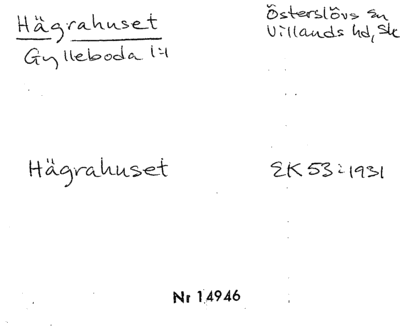 Hägrahuset
Gylleboda 1:1
Österslövs sn
Villands hd, Sk
Hägrahuset
EK 53:1931
Nr 14946